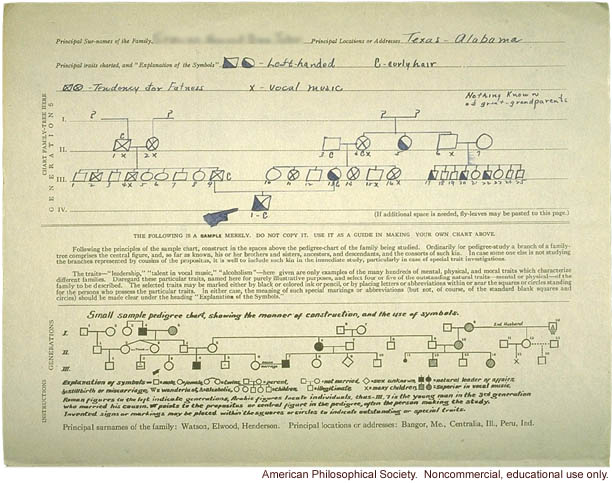 Principal Sur-names of the Family, Principal Locations or Addresses Texas - Alabama
Principal traits charted, and "Explanation of the Symbols" - Left-handed C-curly hair
- Tendency for Fatness x - vocal music
Nothing Known of great-grandparents
CHART FAMILY-TREE HERE
GENERATIONS
I. ? ? ? ?
II. C 1 X 2 X 3 C 4 CX 5 6 X 7
III. 1 2 3 4 X 5 6 7 8 9 C 10 11 12 13 C 14 15 X 16 17 18 19 20 21 22 23 24 25
IV. 1 - C
(If additional space is needed, fly-leaves may be pasted to this page.)
THE FOLLOWING IS A SAMPLE MERELY. DO NOT COPY IT. USE IT AS A GUIDE IN MAKING YOUR OWN CHART ABOVE.
Following the principles of the sample chart, construct in the spaces above the pedigree-chart of the family being studied. Ordinarily for pedigree-study a branch of a family-
tree comprises the central figure, and, so far as known, his or her brothers and sisters, ancestors, descendants, and the consorts of such kin. In case some one else is not studying
the branches represented by cousins of the propositus, it is well to include such kin in the immediate study, particularly in case of special trait investigations.
The traits—"leadership," "talent in vocal music," "alcoholism"—here given are only examples of the many hundreds of mental, physical, and moral traits which characterize
different families. Dismissing these particular traits, named here for purely illustrative purposes, and select four or five of the outstanding natural traits—mental or physical—of the
family to be described. The selected traits may be marked either by black or colored ink or pencil, or by placing letters or abbreviations within or near the squares or circles standing
for the persons who possess the particular traits. In either case, the meaning of such special markings or abbreviations (but not, of course, of the standard blank squares and
circles) should be made clear under the heading "Explanation of the Symbols."
Small sample pedigree chart, showing the manner of construction, and the use of symbols.
GENERATIONS
I.
2nd Husband
II.
III.
INSTRUCTIONS
Explanation of symbols
Roman figures to the left indicate generations, Arabic figures locate individuals, thus- III, 7 is the young man in the 3rd generation
who married his cousin. points to the propositus or central figure in the pedigree, often the person making the study.
Invented signs or markings may be placed within the squares or circles to indicate outstanding or special traits.
Principal surnames of the family: Watson, Elwood, Henderson. Principal locations or addresses: Bangor, Me., Centralia, Ill., Peru, Ind.
American Philosophical Society. Noncommercial, educational use only.